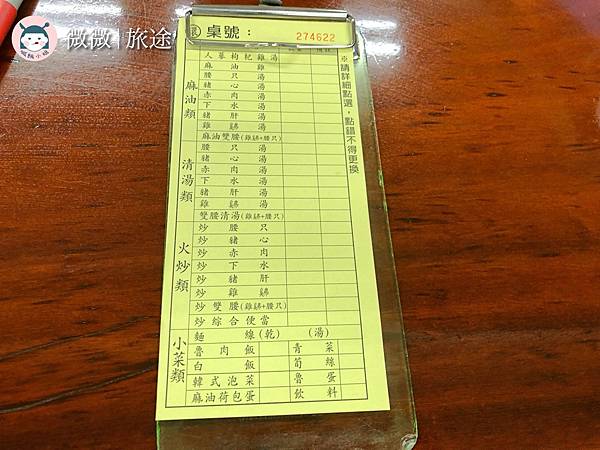 微微|旅途
微微小姐
桌號：
274622
※請詳細點選，點錯不得更換
麻油類
人蔘枸杞雞湯
麻油雞
腰只湯
豬心湯
赤肉湯
下水湯
豬肝湯
雞䏑湯
麻油雙腰(雞䏑+腰只)
清湯類
腰只湯
豬心湯
赤肉湯
下水湯
豬肝湯
雞䏑湯
雙腰清湯(雞䏑+腰只)
火炒類
炒腰只
炒豬心
炒赤肉
炒下水
炒豬肝
炒雞䏑
炒雙腰(雞䏑+腰只)
炒綜合便當
小菜類
麵線(乾) (湯)
魯肉飯 青菜
白飯 筍絲
韓式泡菜 魯蛋
麻油荷包蛋 飲料